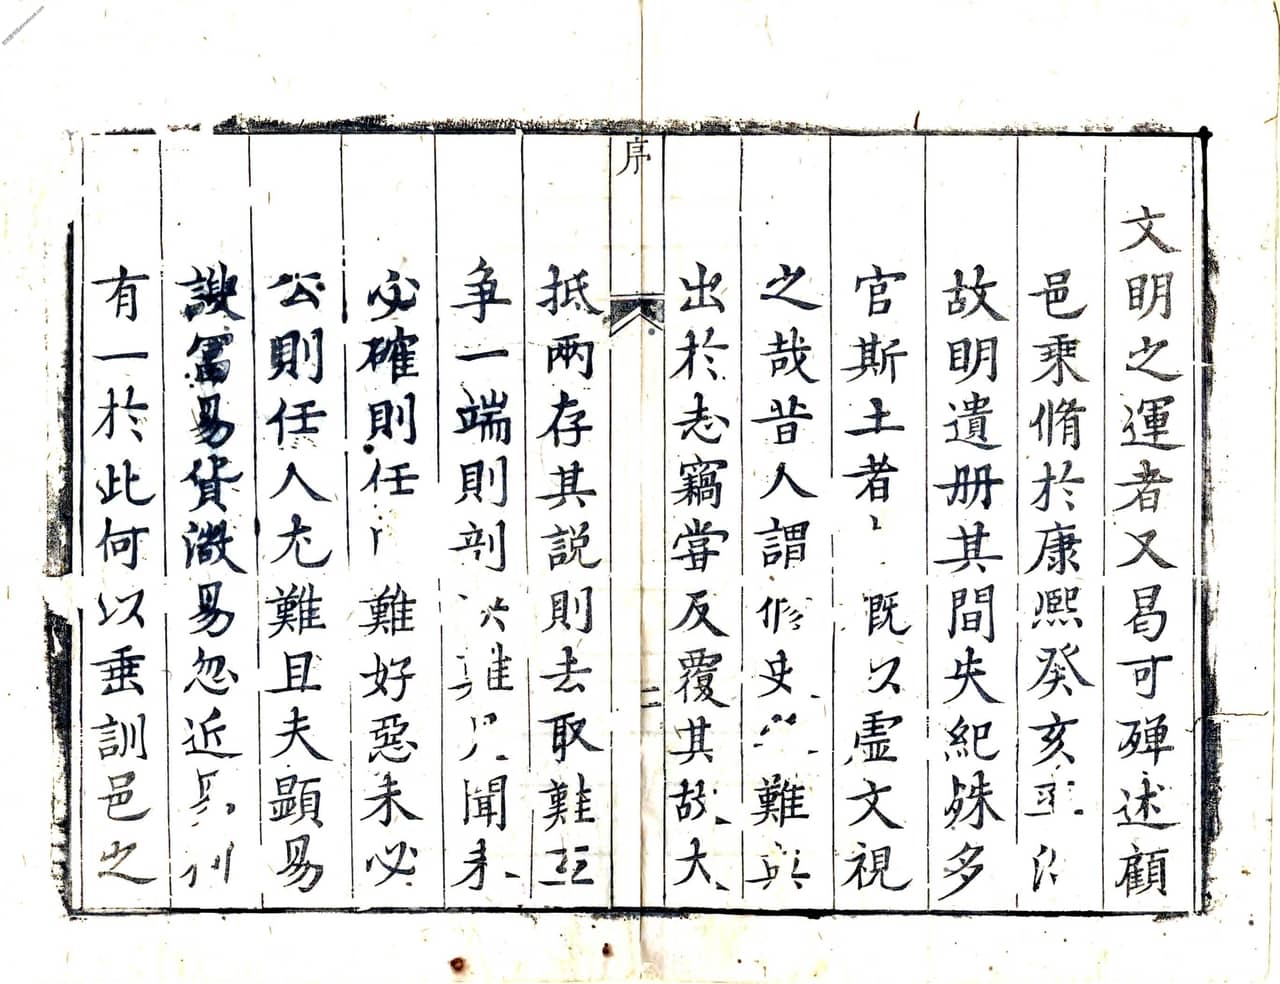 文明之運者又曷可殫述顧
邑乗脩於康熙癸亥
故明遺册其間失紀殊多
官斯土者 既以虛文視
之哉昔人謂修史 難
出於志竊嘗反覆其故大
序
二
抵兩存其説則去取難互
争一端則剖 難見聞未
必確則任 難好惡未必
公則任人尤難且夫顯易
諛富易貨微易忽近易
有一於此何以垂訓邑之